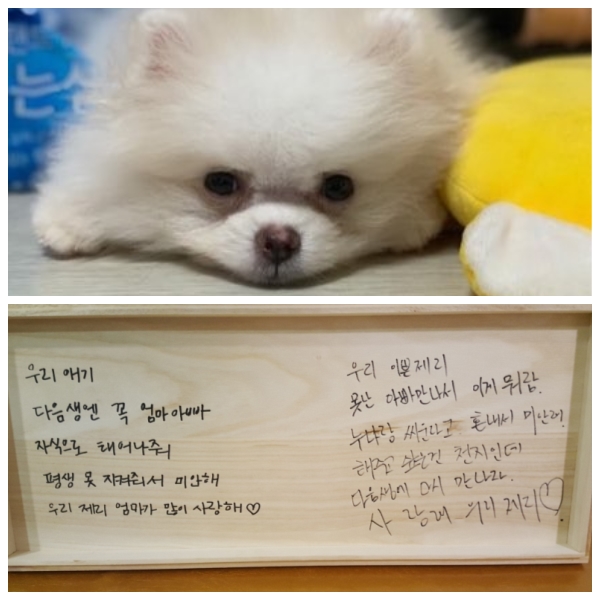 우리 애기
다음생엔 꼭 엄마아빠
자식으로 태어나줘
평생 못 지켜줘서 미안해
우리 제리 엄마가 많이 사랑해♡
우리 이쁜제리
못난 아빠만나서 이게 뭐람.
누나랑 싸운다고 혼내서 미안해!
해주고 싶은건 천지인데
다음생에 다시 만나자.
사랑해 우리 제리♡!